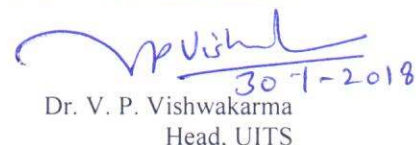 VP Vishwl
30-1-2018
Dr. V. P. Vishwakarma
Head, UITS